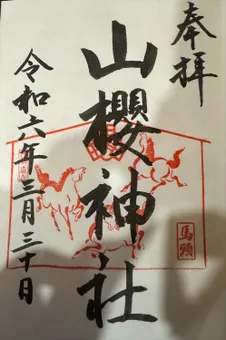 奉拝
山櫻神社
令和六年三月三十日
馬頭